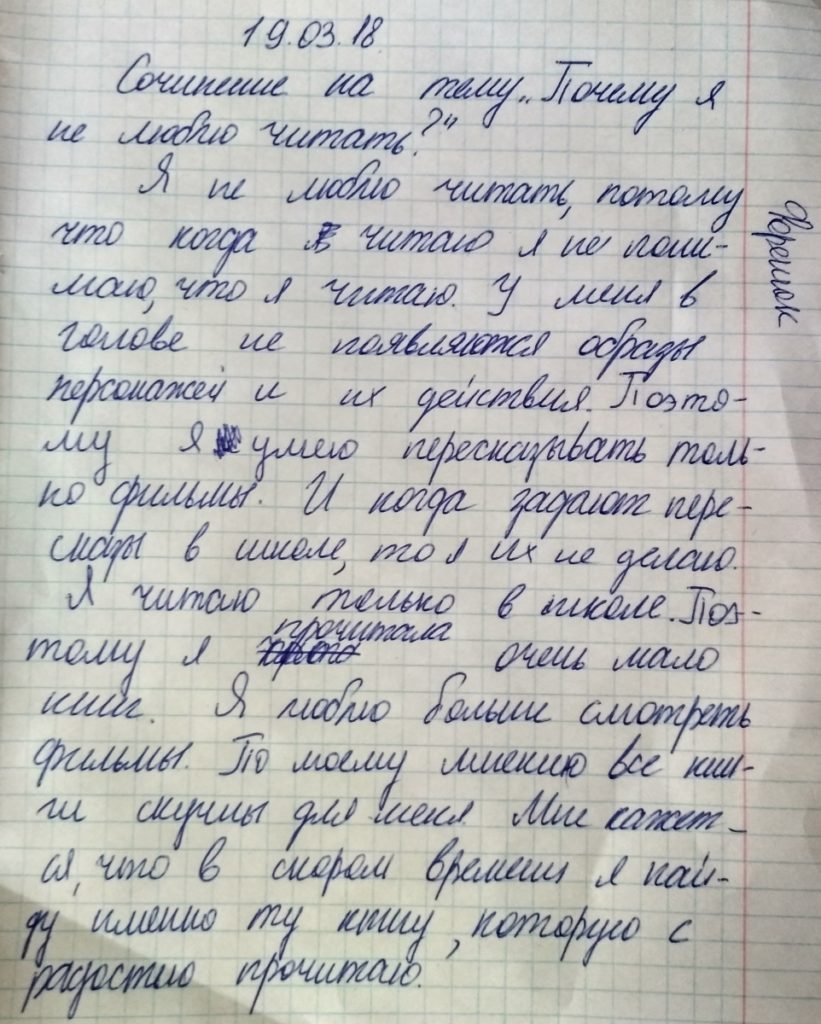 19.03.18
Сочинение на тему „Почему я
не люблю читать?"
Я не люблю читать, потому
что когда я читаю я не пони-
маю, что я читаю. У меня в
голове не появляются образы
персонажей и их действия. Поэто-
му я умею пересказывать толь-
ко фильмы. И когда задают пере-
сказы в школе, то я их не делаю.
Я читаю только в школе. Поэ-
тому я прочитала очень мало
книг. Я люблю больше смотреть
фильмы. По моему мнению все кни-
ги скучны для меня. Мне кажет-
ся, что в скором времени я най-
ду именно ту книгу, которую с
радостью прочитаю.